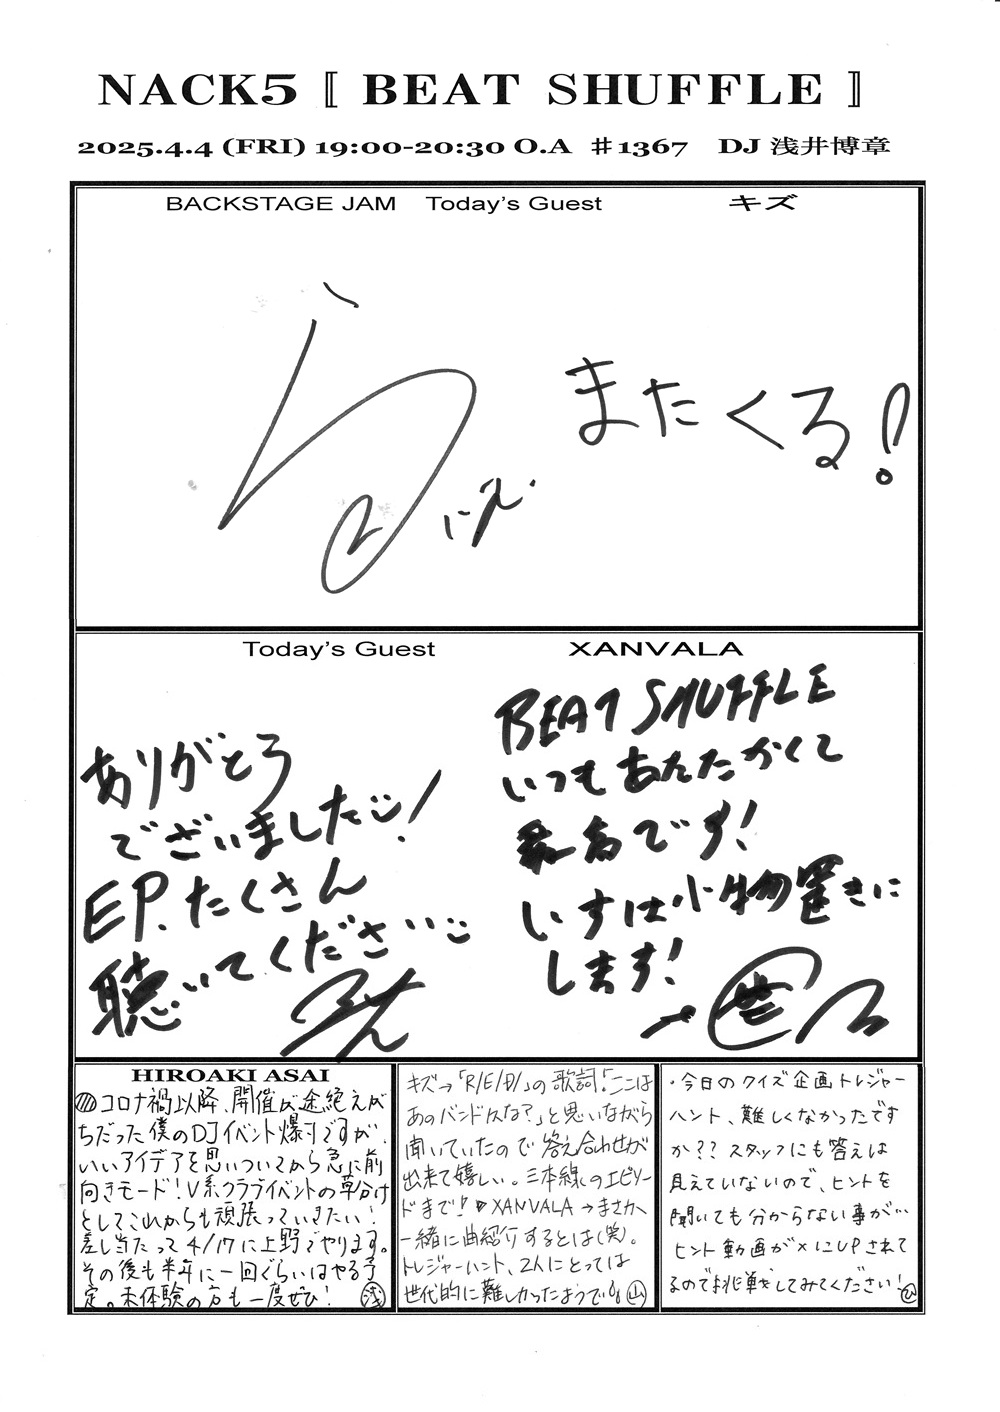 NACK5 『 BEAT SHUFFLE 』
2025.4.4 (FRI) 19:00-20:30 O.A ＃1367 DJ 浅井博章
BACKSTAGE JAM Today's Guest キズ
またくる!
Today's Guest XANVALA
ありがとう
ございました!
EP.たくさん
聴いてください
BEAT SHUFFLE
いつもあたたかくて
最高です!
いすは小物置きに
します!
HIROAKI ASAI
コロナ禍以降、開催が途絶えが
ちだった僕のDJイベント爆りですが、
いいアイデアを思いついてから急に前
向きモード!V系クラブイベントの草分け
としてこれからも頑張っていきたい!
差し当たって4/17に上野でやります。
その後も半年に一回ぐらいはやる予
定。未体験の方も一度ぜひ! 浅
キズ→「R/E/D/」の歌詞!「ここは
あのバンドかな?」と思いながら
聞いていたので答え合わせが
出来て嬉しい。三本線のエピソー
ドまで! XANVALA→まさか
一緒に曲紹介するとは(笑)。
トレジャーハント、2人にとっては
世代的に難しかったようで 山
・今日のクイズ企画トレジャー
ハント、難しくなかったです
か?? スタッフにも答えは
見えていないので、ヒントを
聞いても分からない事が…
ヒント動画がXにUPされて
るので挑戦してみてください! ひ